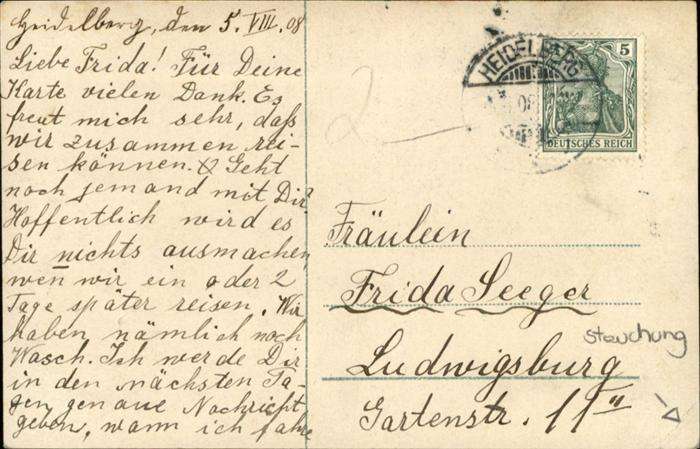 Heidelberg, den 5. VIII. 08
Liebe Frida! Für Deine
Karte vielen Dank. Es
freut mich sehr, daß
wir zusammen rei-
sen können. Geht
noch jemand mit Dir?
Hoffentlich wird es
Dir nichts ausmachen,
wen̄ wir ein oder 2
Tage später reisen. Wir
haben nämlich noch
Wasch. Ich werde Dir
in den nächsten Ta-
gen genaue Nachricht
geben, wann ich fahre
HEIDELBERG
5
DEUTSCHES REICH
2
Fräulein
Frida Seeger
stauchung
Ludwigsburg
Gartenstr. 11